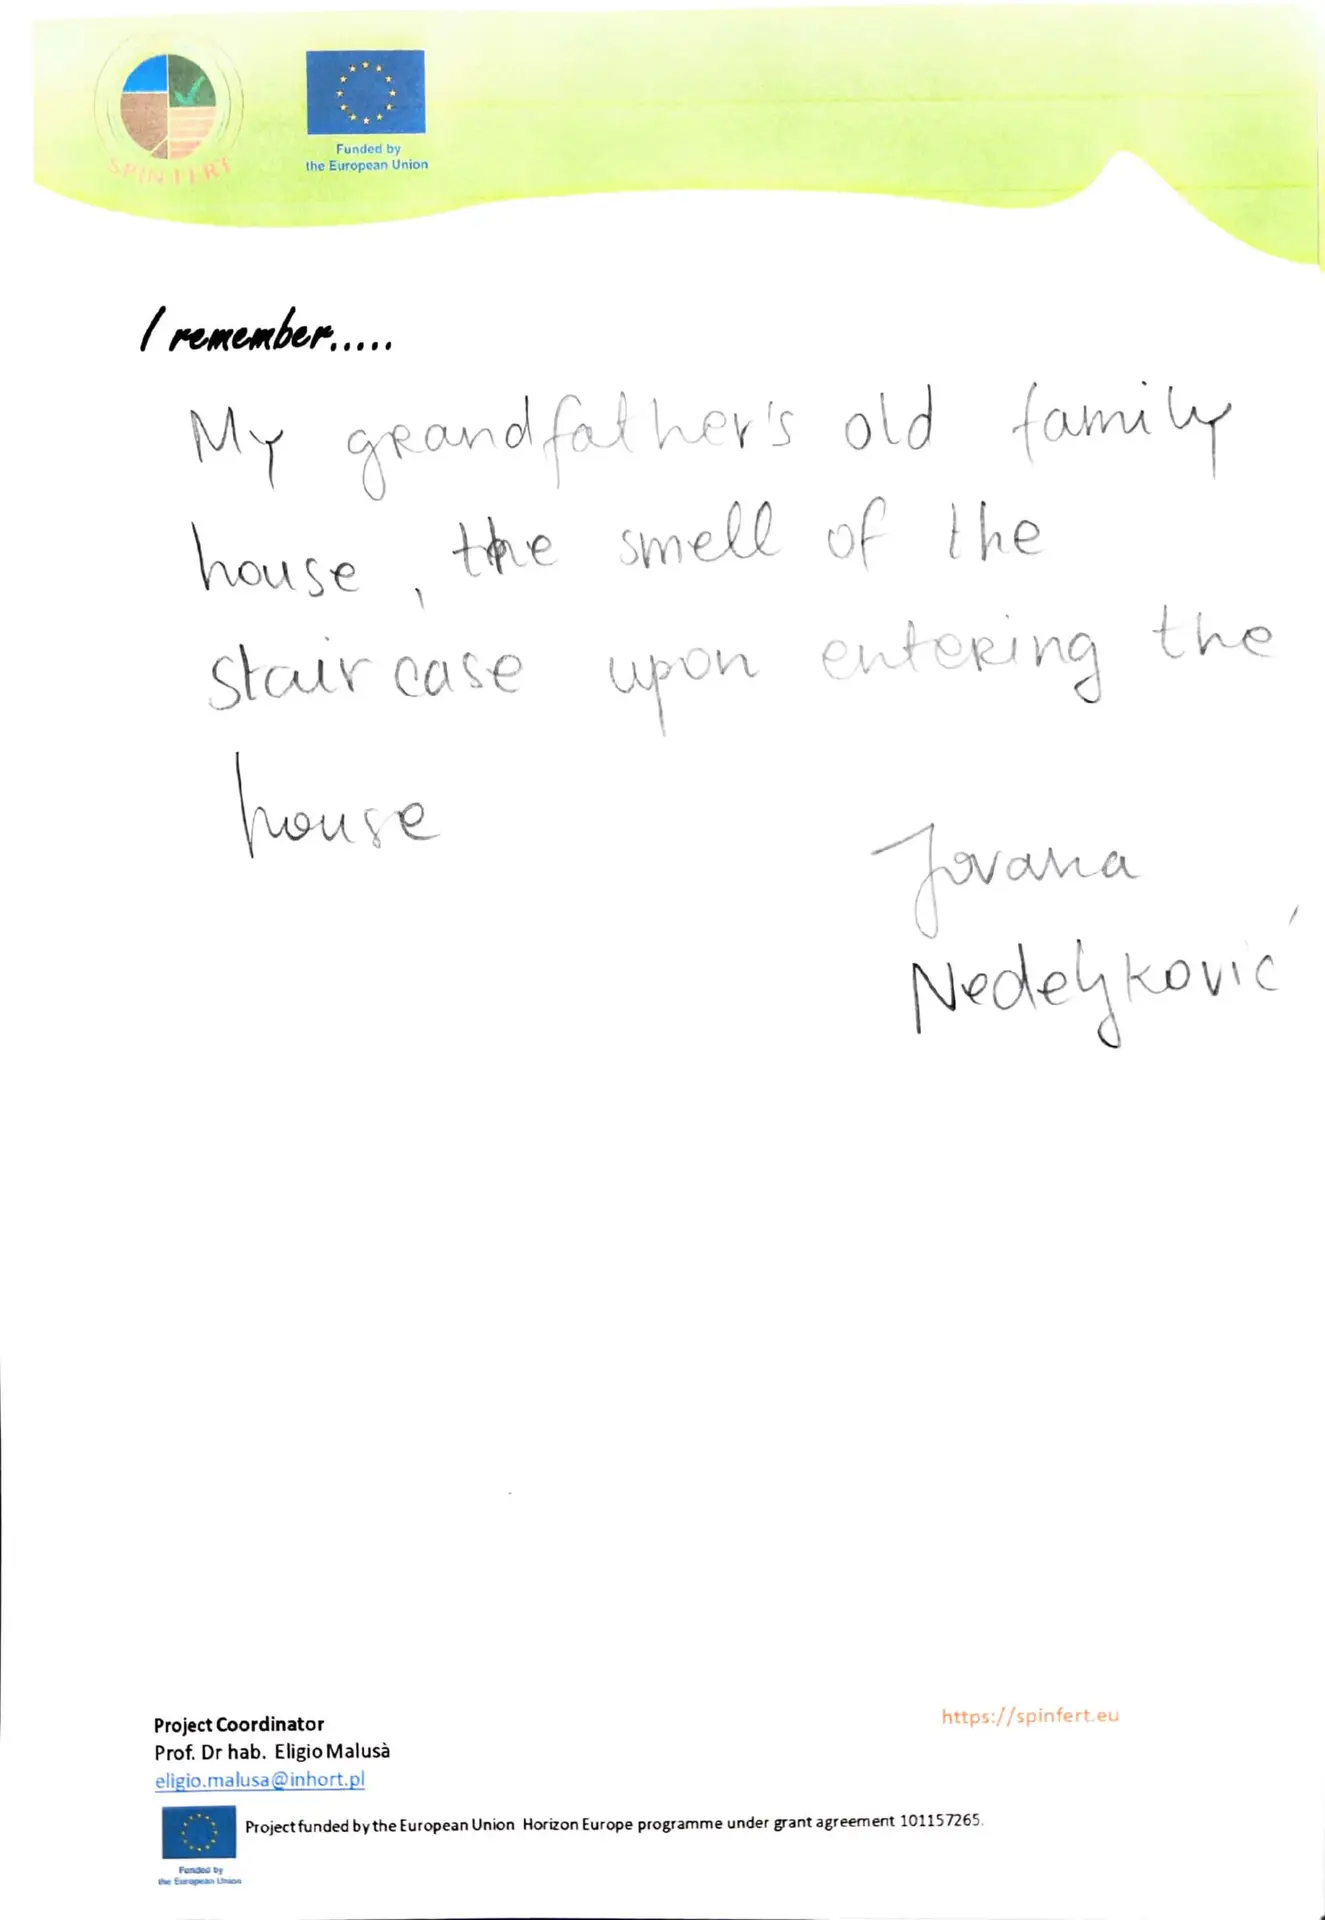 SPIN FERT
Funded by
the European Union
I remember.....
My grandfather's old family
house, the smell of the
staircase upon entering the
house
Jovana
Nedeljković
Project Coordinator
Prof. Dr hab. Eligio Malusà
eligio.malusa@inhort.pl
https://spinfert.eu
Project funded by the European Union Horizon Europe programme under grant agreement 101157265.
Funded by
the European Union